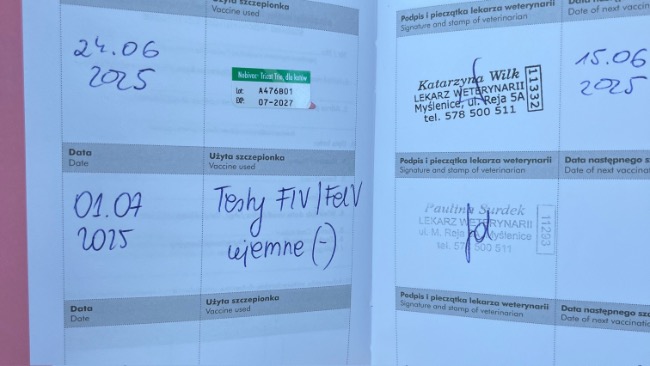 Użyta szczepionka
Vaccine used
Podpis i pieczątka lekarza weterynarii
Signature and stamp of veterinarian
Data następnego
Date of next vaccination
24.06
2025
Nobivac Tricat Trio, dla kotów
Lot: A476B01
EXP: 07-2027
Katarzyna Wilk
LEKARZ WETERYNARII
Myślenice, ul. Reja 5A
tel. 578 500 511
11332
15.06
2025
Data
Date
Użyta szczepionka
Vaccine used
Podpis i pieczątka lekarza weterynarii
Signature and stamp of veterinarian
Data następnego sz
Date of next vaccinatio
01.07
2025
Testy FIV/FelV
ujemne (-)
Paulina Surdek
LEKARZ WETERYNARII
ul. M. Reja Myślenice
tel. 578 500 511
11293
Data
Date
Użyta szczepionka
Vaccine used
Podpis i pieczątka lekarza weterynarii
Signature and stamp of veterinarian
Data następnego szc
Date of next vaccinatio